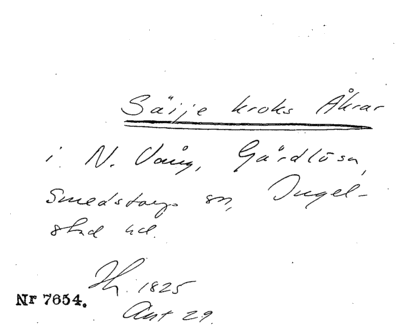 Säije kroks Åkrar
i N. Vång, Gärdlösa,
Smedstorps sn, Ingel-
stad hd.
Lh. 1825
Akt 29
Nr 7654.